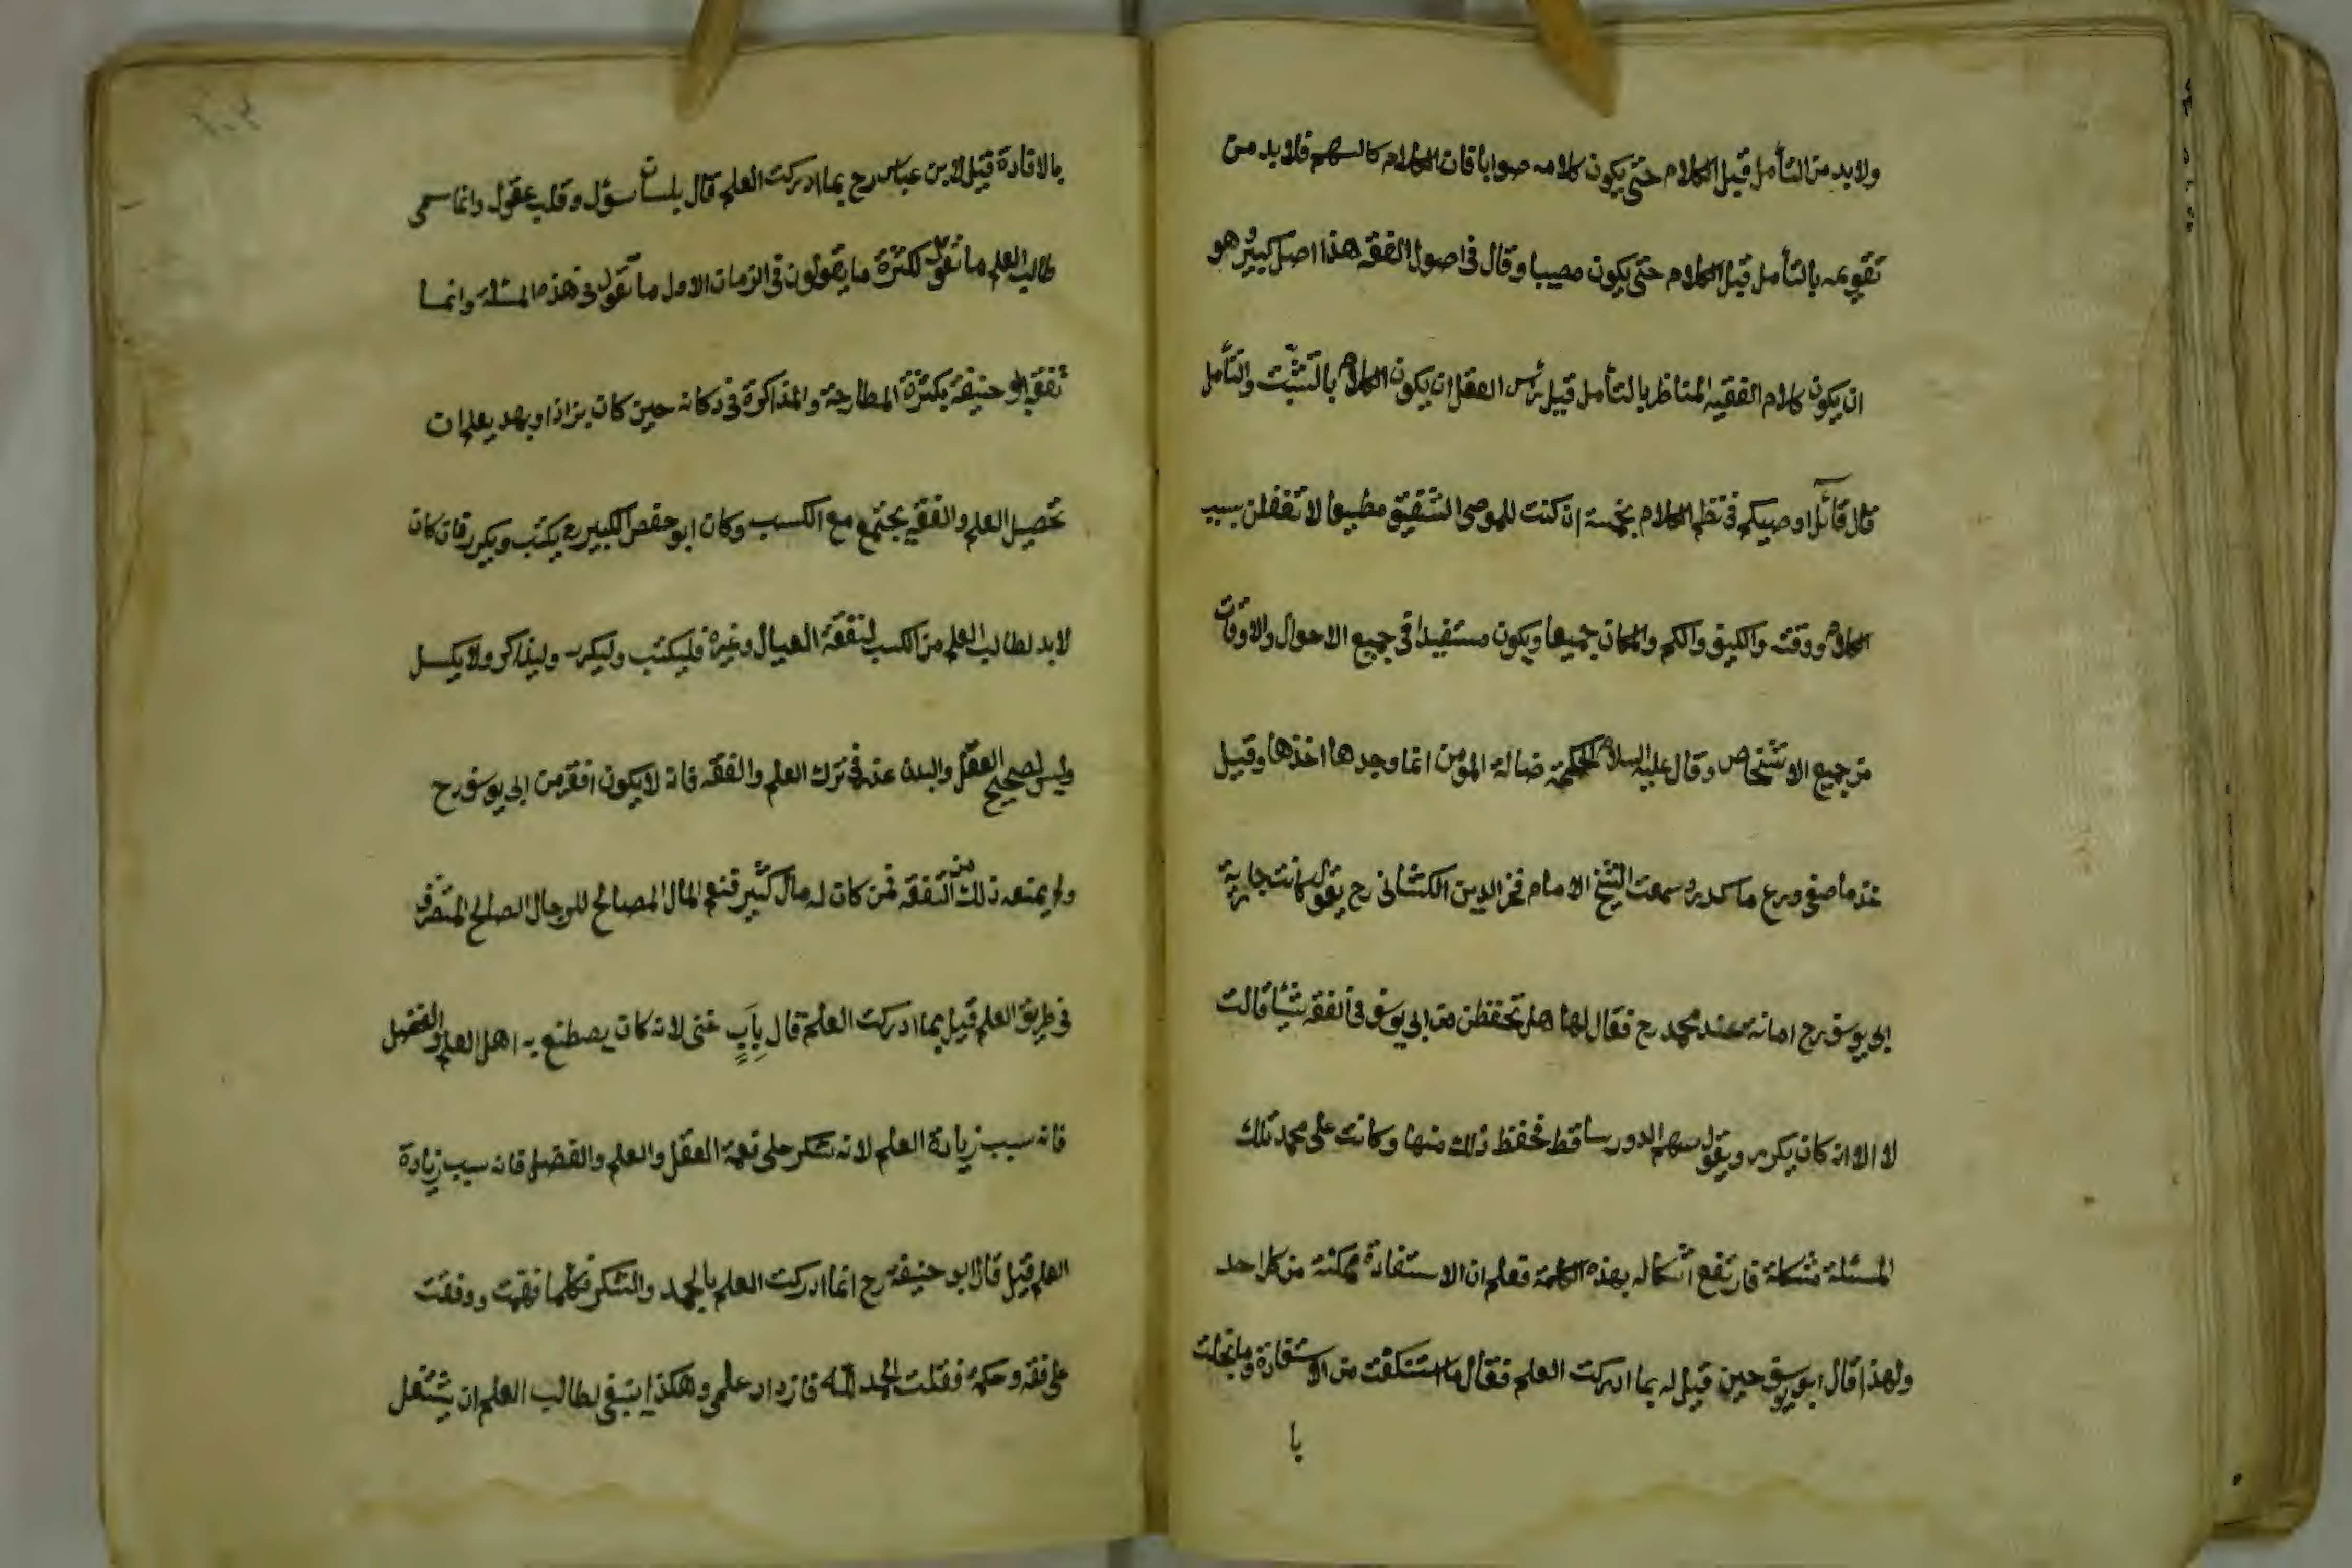 ولا بد من التأمل قبل الكلام حتى يكون كلامه صوابا فان الكلام كالسهم فلا بد من
تقويمه بالتأمل قبل الكلام حتى يكون مصيبا وقال فى اصول الفقه هذا اصل كبير وهو
ان يكون كلام الفقيه المناظر بالتأمل قيل رأس العقل ان يكون الكلام بالتثبت والتأمل
قال قائل اوصيكم فى نظم الكلام بخمسة ان كنت للموصى الشفيق مطيعا لا تغفلن سبب
الكلام ووقته والكيف والكم والمكان جميعا ويكون مستفيدا فى جميع الاحوال والاوقات
من جميع الاشخاص وقال عليه السلام الحكمة ضالة المؤمن انما وجدها اخذها وقيل
خذ ما صفى ودع ما كدر وسمعت الشيخ الامام فخر الدين الكشانى رح يقول كانت جارية
ابى يوسف رح امانة عند محمد رح فقال لها هل تحفظن من ابى يوسف فى الفقه شيئا قالت
لا الا انه كان يكرر ويقول سهم الدور ساقط فحفظ ذلك منها وكانت على محمد تلك
المسئلة مشكلة فارتفع اشكاله بهذه الكلمة فعلم ان الاستفادة ممكنة من كل احد
ولهذا قال ابو يوسف حين قيل له بما ادركت العلم فقال ما استنكفت من الاستفادة وما بخلت
با
بالافادة قيل لابن عباس رح بما ادركت العلم قال بلسان سؤل وقلب عقول وانما سمى
طالب العلم ما تقول لكثرة ما يقولون فى الزمان الاول ما تقول فى هذه المسئلة وانما
تفقه ابو حنيفة بكثرة المطارحة والمذاكرة فى دكانه حين كان بزازا وبهد يعلم ان
تحصيل العلم والفقه يجتمع مع الكسب وكان ابو حفص الكبير رح يكتب ويكرر فان كان
لا بد لطالب العلم من الكسب لنفقة العيال وغيره فليكتب وليكرر وليذاكر ولا يكسل
وليس لصحيح العقل والبدن عذر فى ترك العلم والفقه فانه لا يكون افقر من ابى يوسف رح
ولم يمنعه ذلك من التفقه فمن كان له مال كثير فنعم المال المصالح للرجال الصالح المتصرف
فى طريق العلم قيل بما ادركت العلم قال بِاَبٍ غنى لانه كان يصطنع به اهل العلم والفضل
فانه سبب زيادة العلم لانه شكر على نعمة العقل والعلم والفضل فانه سبب زيادة
العلم قيل قال ابو حنيفة رح انما ادركت العلم بالحمد والشكر فكلما فقهت ووفقت
على فقه وحكمة فقلت الحمد لله فازداد علمى وهكذا ينبغى لطالب العلم ان يشتغل